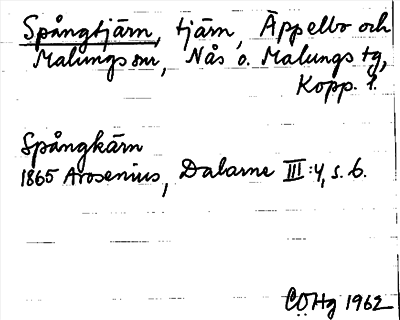 Spångtjärn, tjärn, Äppelbo och
Malungs snr, Nås o. Malungs tg,
Kopp. l.
Spångkärn
1865 Arosenius, Dalarne III:4, s. 6.
CÖHg 1962